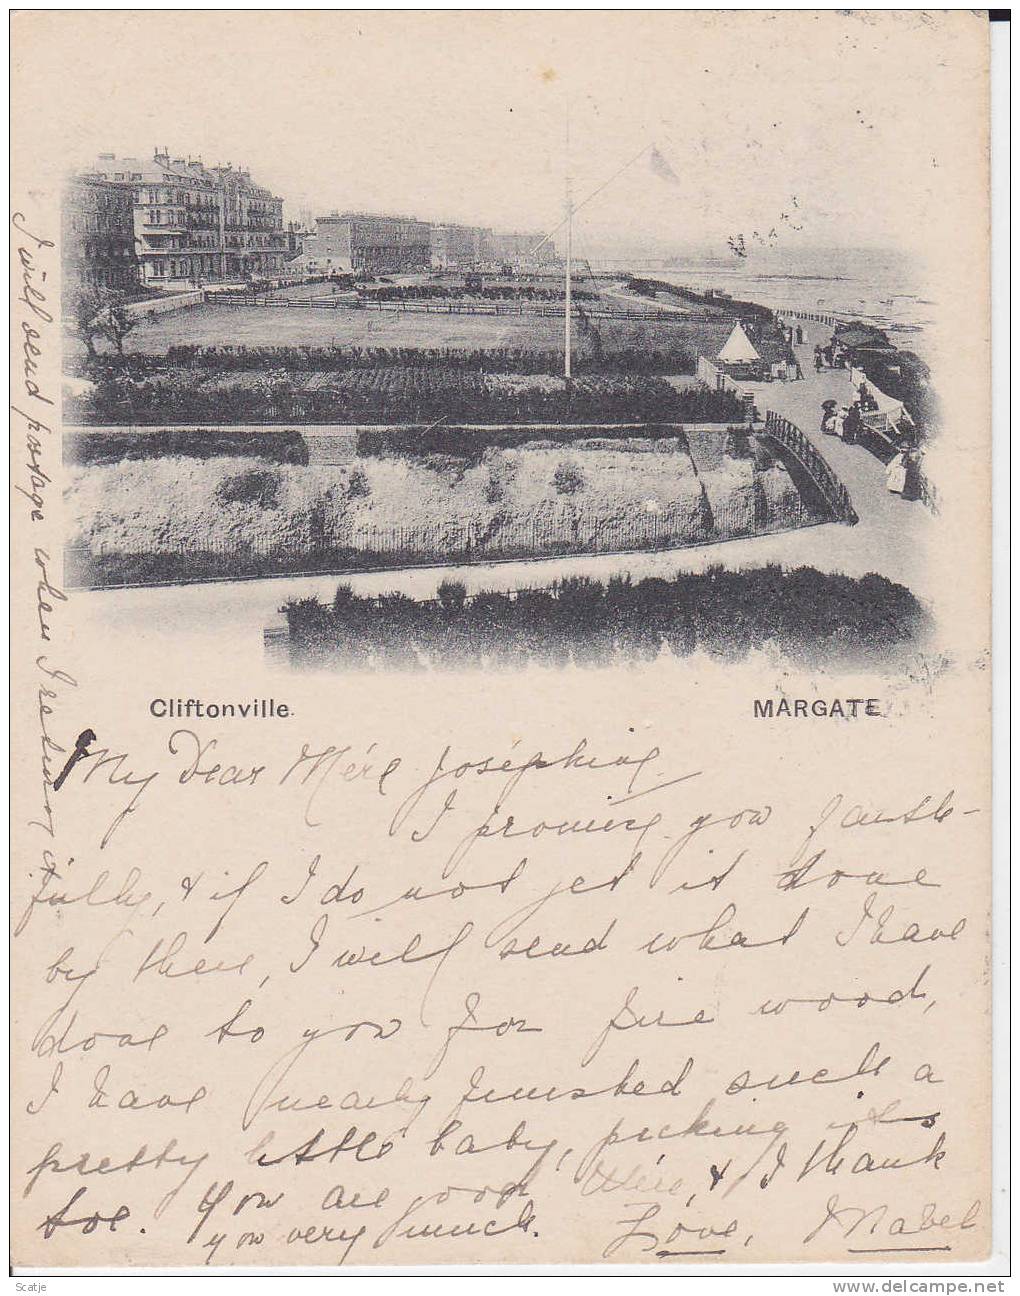 Cliftonville.
MARGATE
My Dear Mère Joséphine
I promise you faith-
fully, & if I do not get it done
by then, I will send what I have
done to you for fire wood,
I have nearly finished such a
pretty little baby, picking its
toe. You are good Mère, & I thank
you very much. Love, Mabel
I will send postage when I return it
Scatje
www.delcampe.net